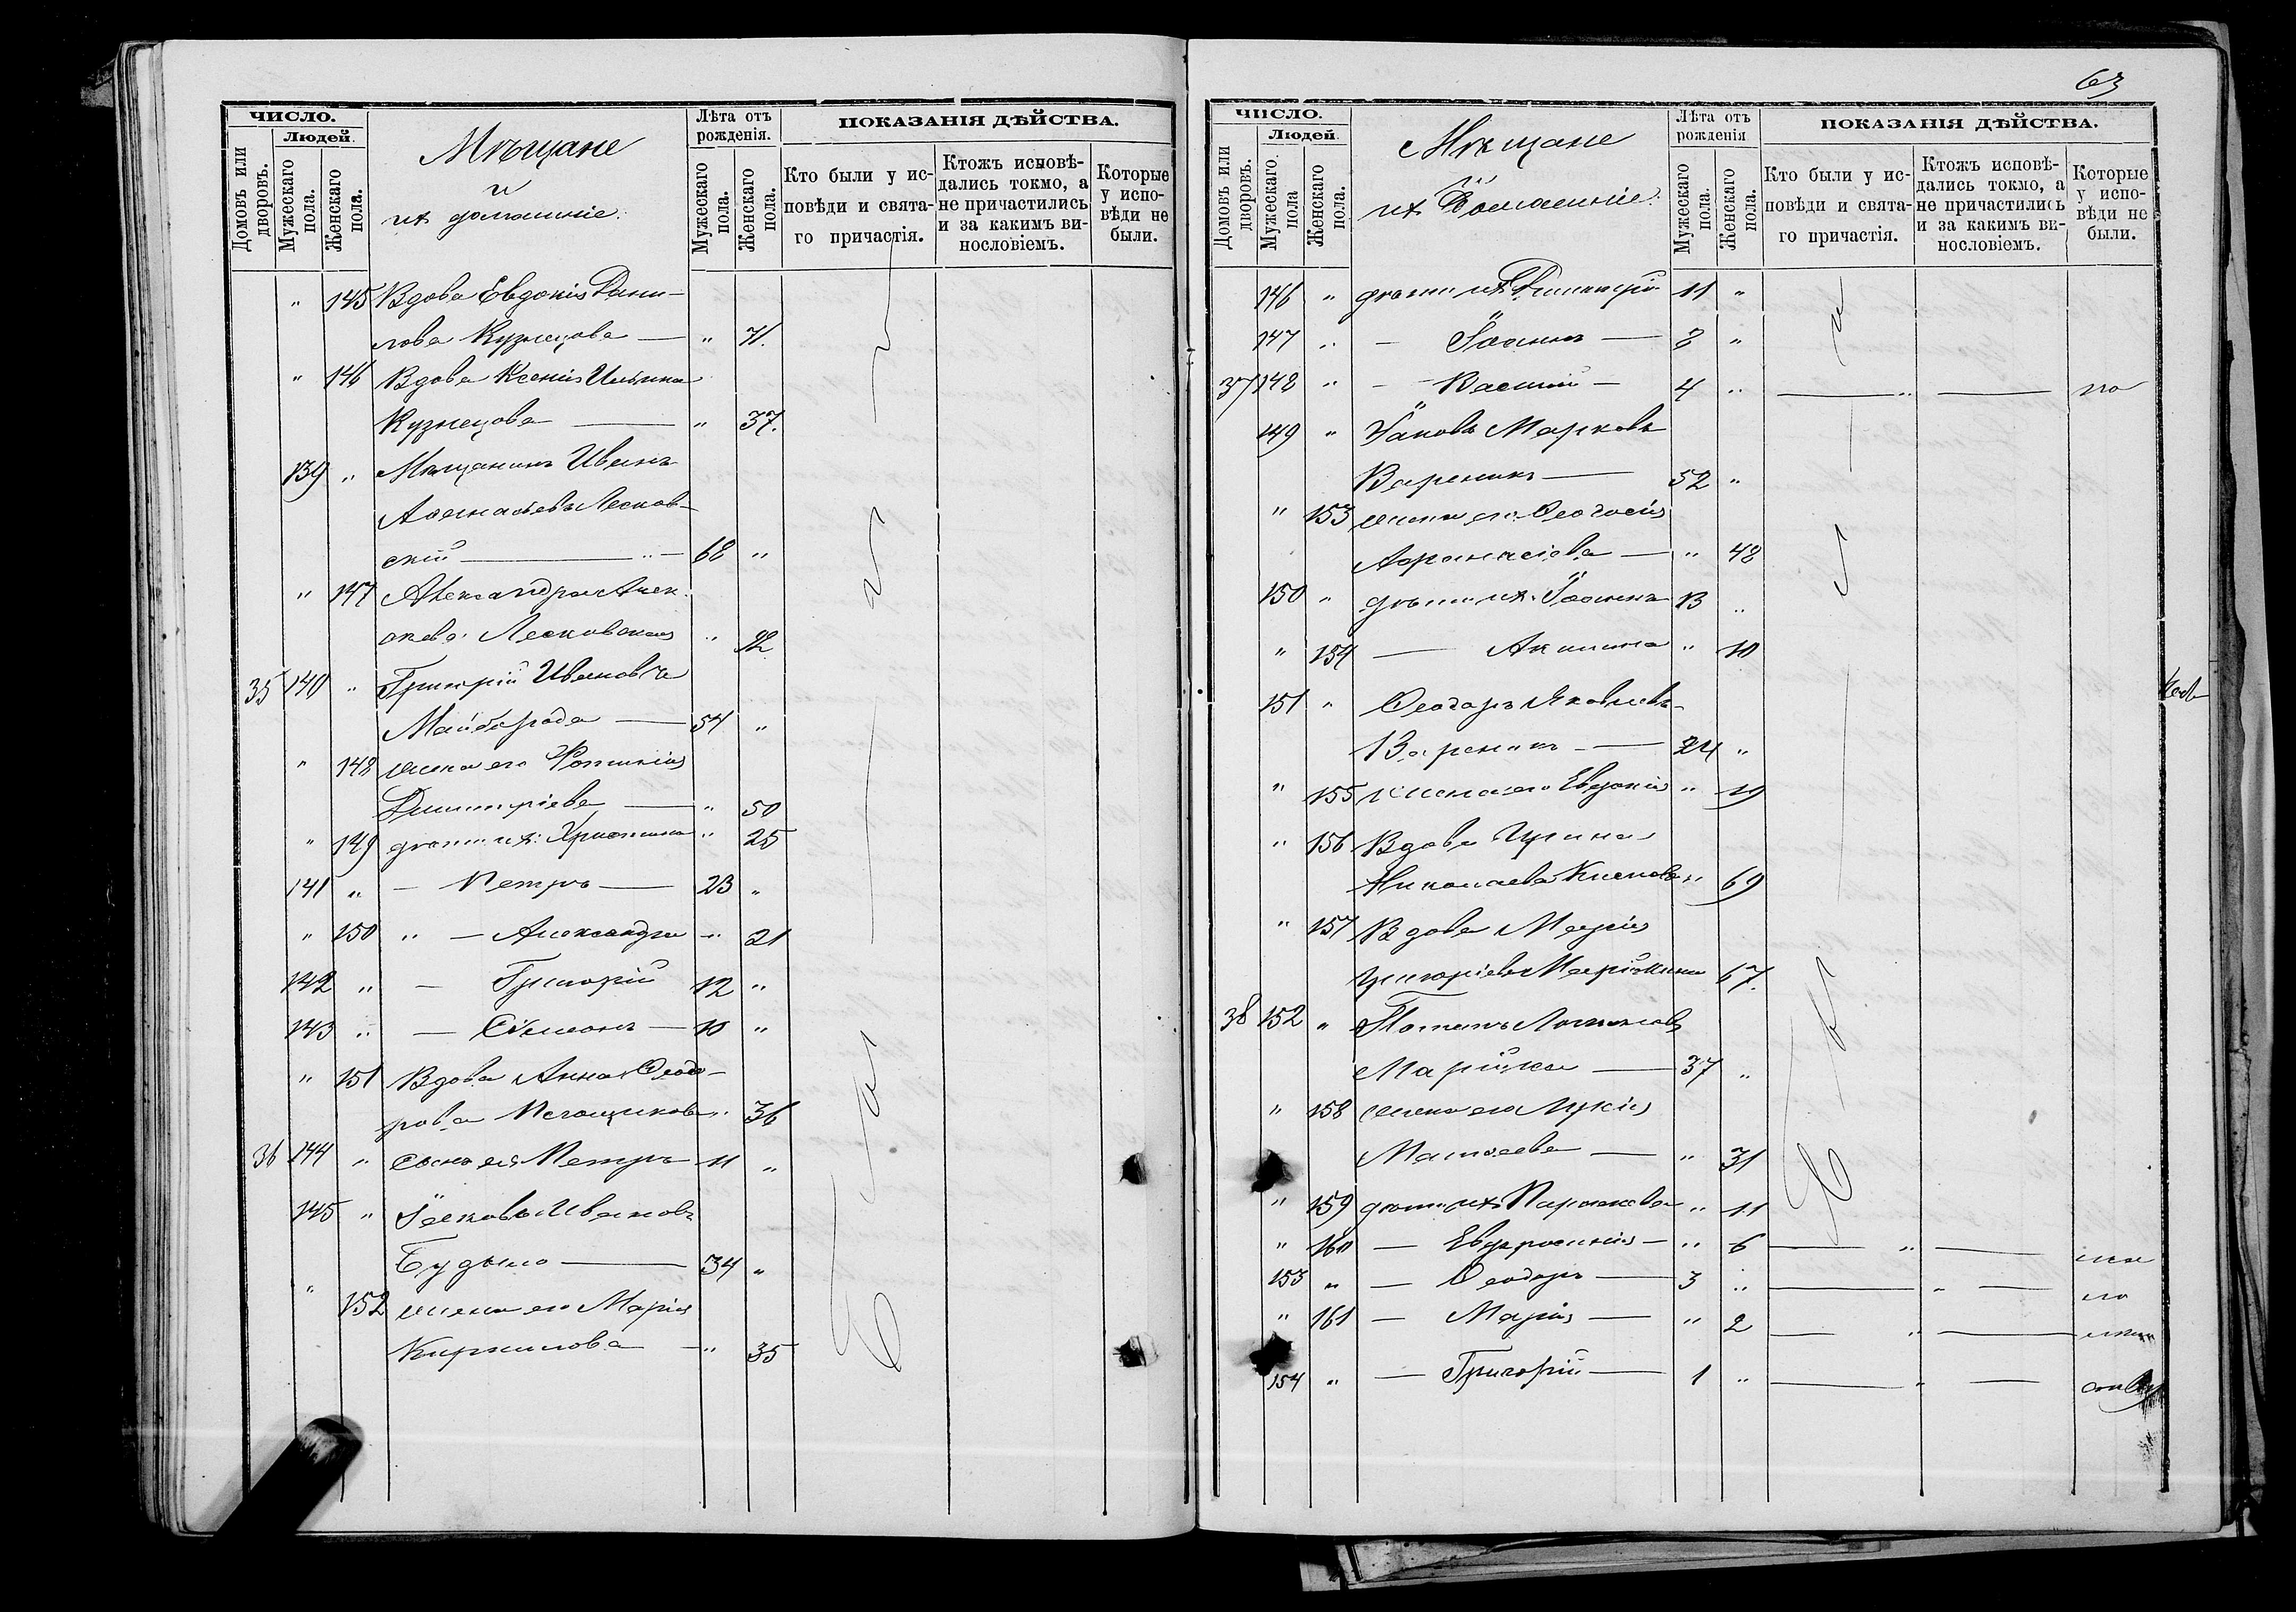 ЧИСЛО.
Людей.
Домовъ или дворовъ.
Мужескаго пола.
Женскаго пола.
Мѣщане
и
ихъ домашніе.
Лѣта отъ рожденія.
Мужескаго пола.
Женскаго пола.
ПОКАЗАНІЯ ДѢЙСТВА.
Кто были у исповѣди и святаго причастія.
Ктожъ исповѣдались токмо, а не причастились и за какимъ винословіемъ.
Которые у исповѣди не были.
" 145 Вдова Евдокія Дани-
лова Кузнецова — " 71.
" 146 Вдова Ксенія Ильина
Кузнецова — " 37.
139 " Мѣщанинъ Иванъ
Аѳанасьевъ Лесков-
скій — 68 "
" 147 Александра Алек
Лесковская "
35 140 " Григорій Ивановъ
Майборода — 54 "
" 148 жена его Фотинія
Димитріева — " 50
" 149 дѣти ихъ: Христина " 25
141 " — Петръ — 23 "
" 150 " — Александра " 21
142 " — Григорій 12 "
143 " — Симеонъ — 10 "
" 151 Вдова Анна Ѳеодо-
рова " 36
36 144 " сынъ ея Петръ 11 "
145 " Іаковъ Ивановъ
Будыло — 34 "
" 152 жена его Марія
Кирилова — " 35
63
ЧИСЛО.
Людей.
Домовъ или дворовъ.
Мужескаго пола
Женскаго пола.
Мѣщане
и
ихъ домашніе.
Лѣта отъ рожденія
Мужескаго пола.
Женскаго пола.
ПОКАЗАНІЯ ДѢЙСТВА.
Кто были у исповѣди и святаго причастія.
Ктожъ исповѣдались токмо, а не причастились и за какимъ винословіемъ.
Которые у исповѣди не были.
146 " дѣти ихъ Димитрій 11 "
147 " — Іоаннъ — 8 "
37 148 " — Василій — 4 " — " —
149 " Іаковъ Марковъ
Вареникъ — 52 "
" 153 жена его Ѳеодосія
Афанасіева — " 48
150 " дѣти ихъ Іоаннъ 13 "
" 154 — Акилина " 10
151 " Ѳеодоръ Яковлевъ
Вареникъ — 24 "
" 155 жена его Евдокія " 19
" 156 Вдова Ирина
Николаева " 69
" 157 Вдова Марія
Григоріева 67.
38 152 " Потапъ
Марійка — 37 "
" 158 жена его Лукія
Матѳеева — " 31
" 159 дѣти ихъ Параскева " 11
" 160 — Евфросинія — " 6 — " —
153 " — Ѳеодоръ — 3 " — " —
" 161 — Марія — " 2 — " —
154 " — Григорій — 1 " — " —